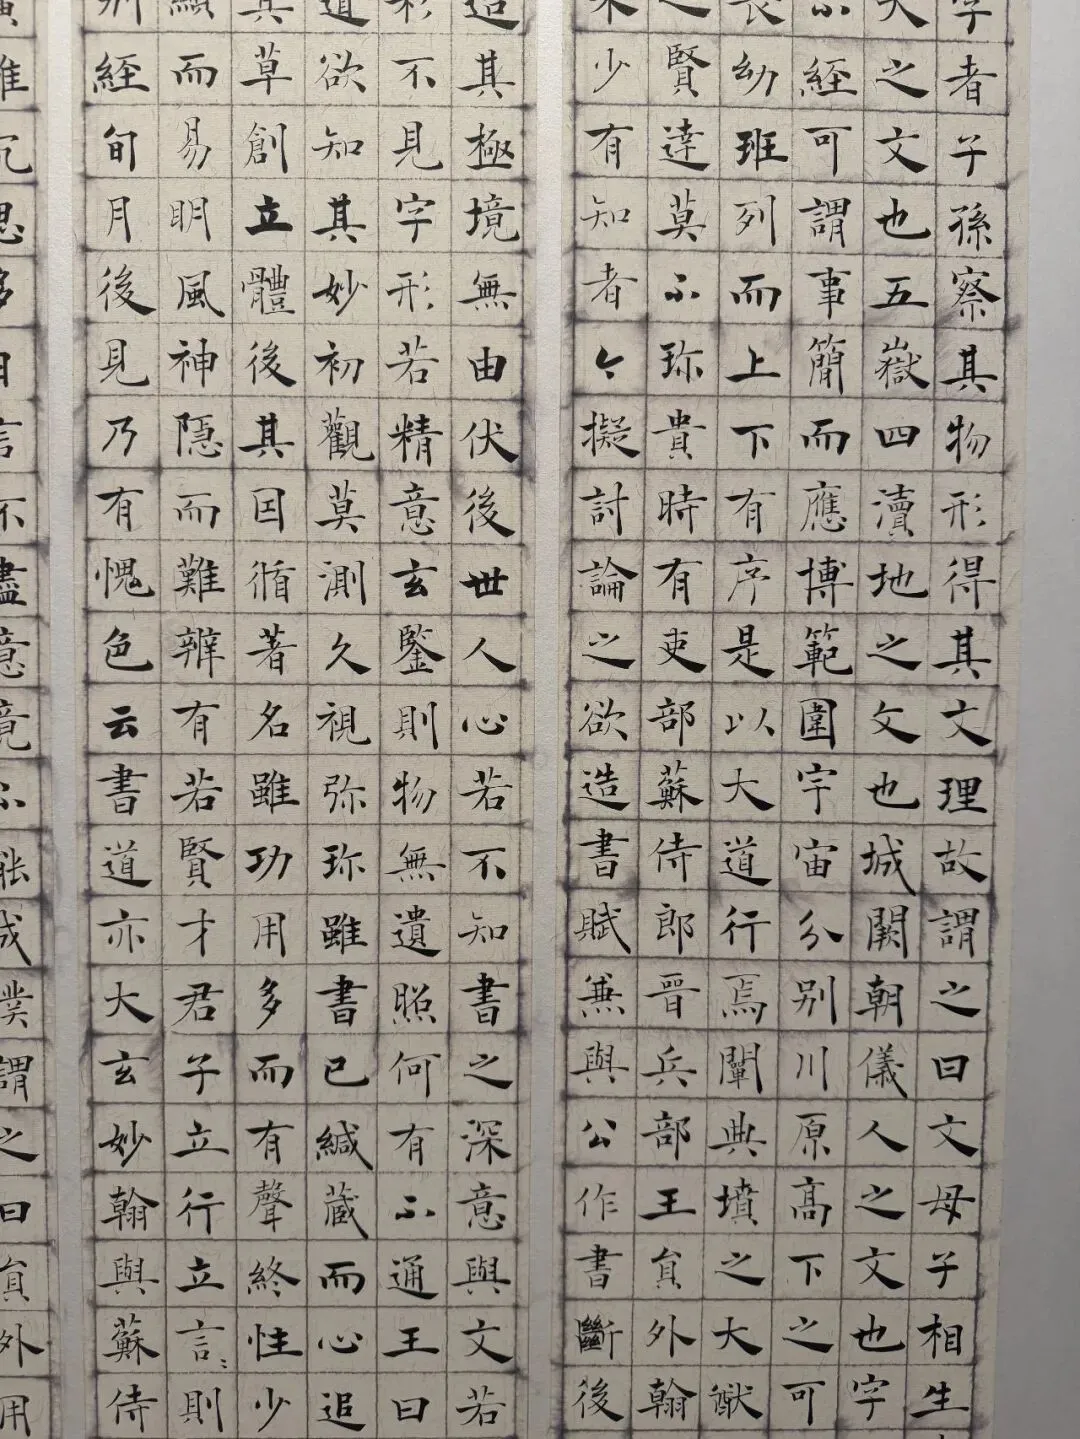 字者子孫察其物形得其文理故謂之曰文母子相生
大之文也五嶽四瀆地之文也城闕朝儀人之文也字
不經可謂事簡而應博範圍宇宙分別川原高下之可
長幼班列而上下有序是以大道行焉闡典墳之大猷
之賢達莫不珎貴時有吏部蘇侍郎晉兵部王員外翰
未少有知者今擬討論之欲造書賦兼與公作書斷後
造其極境無由伏後世人心若不知書之深意與文若
彩不見字形若精意玄鑒則物無遺照何有不通王曰
道欲知其妙初觀莫測久視弥珎雖書已緘蔵而心追
其草創立體後其囙循著名雖功用多而有聲終性少
顯而易明風神隱而難辨有若賢才君子立行立言〻則
別經旬月後見乃有愧色云書道亦大玄妙翰與蘇侍
雖沉思多日言不盡意竟不能成僕謂之曰員外用